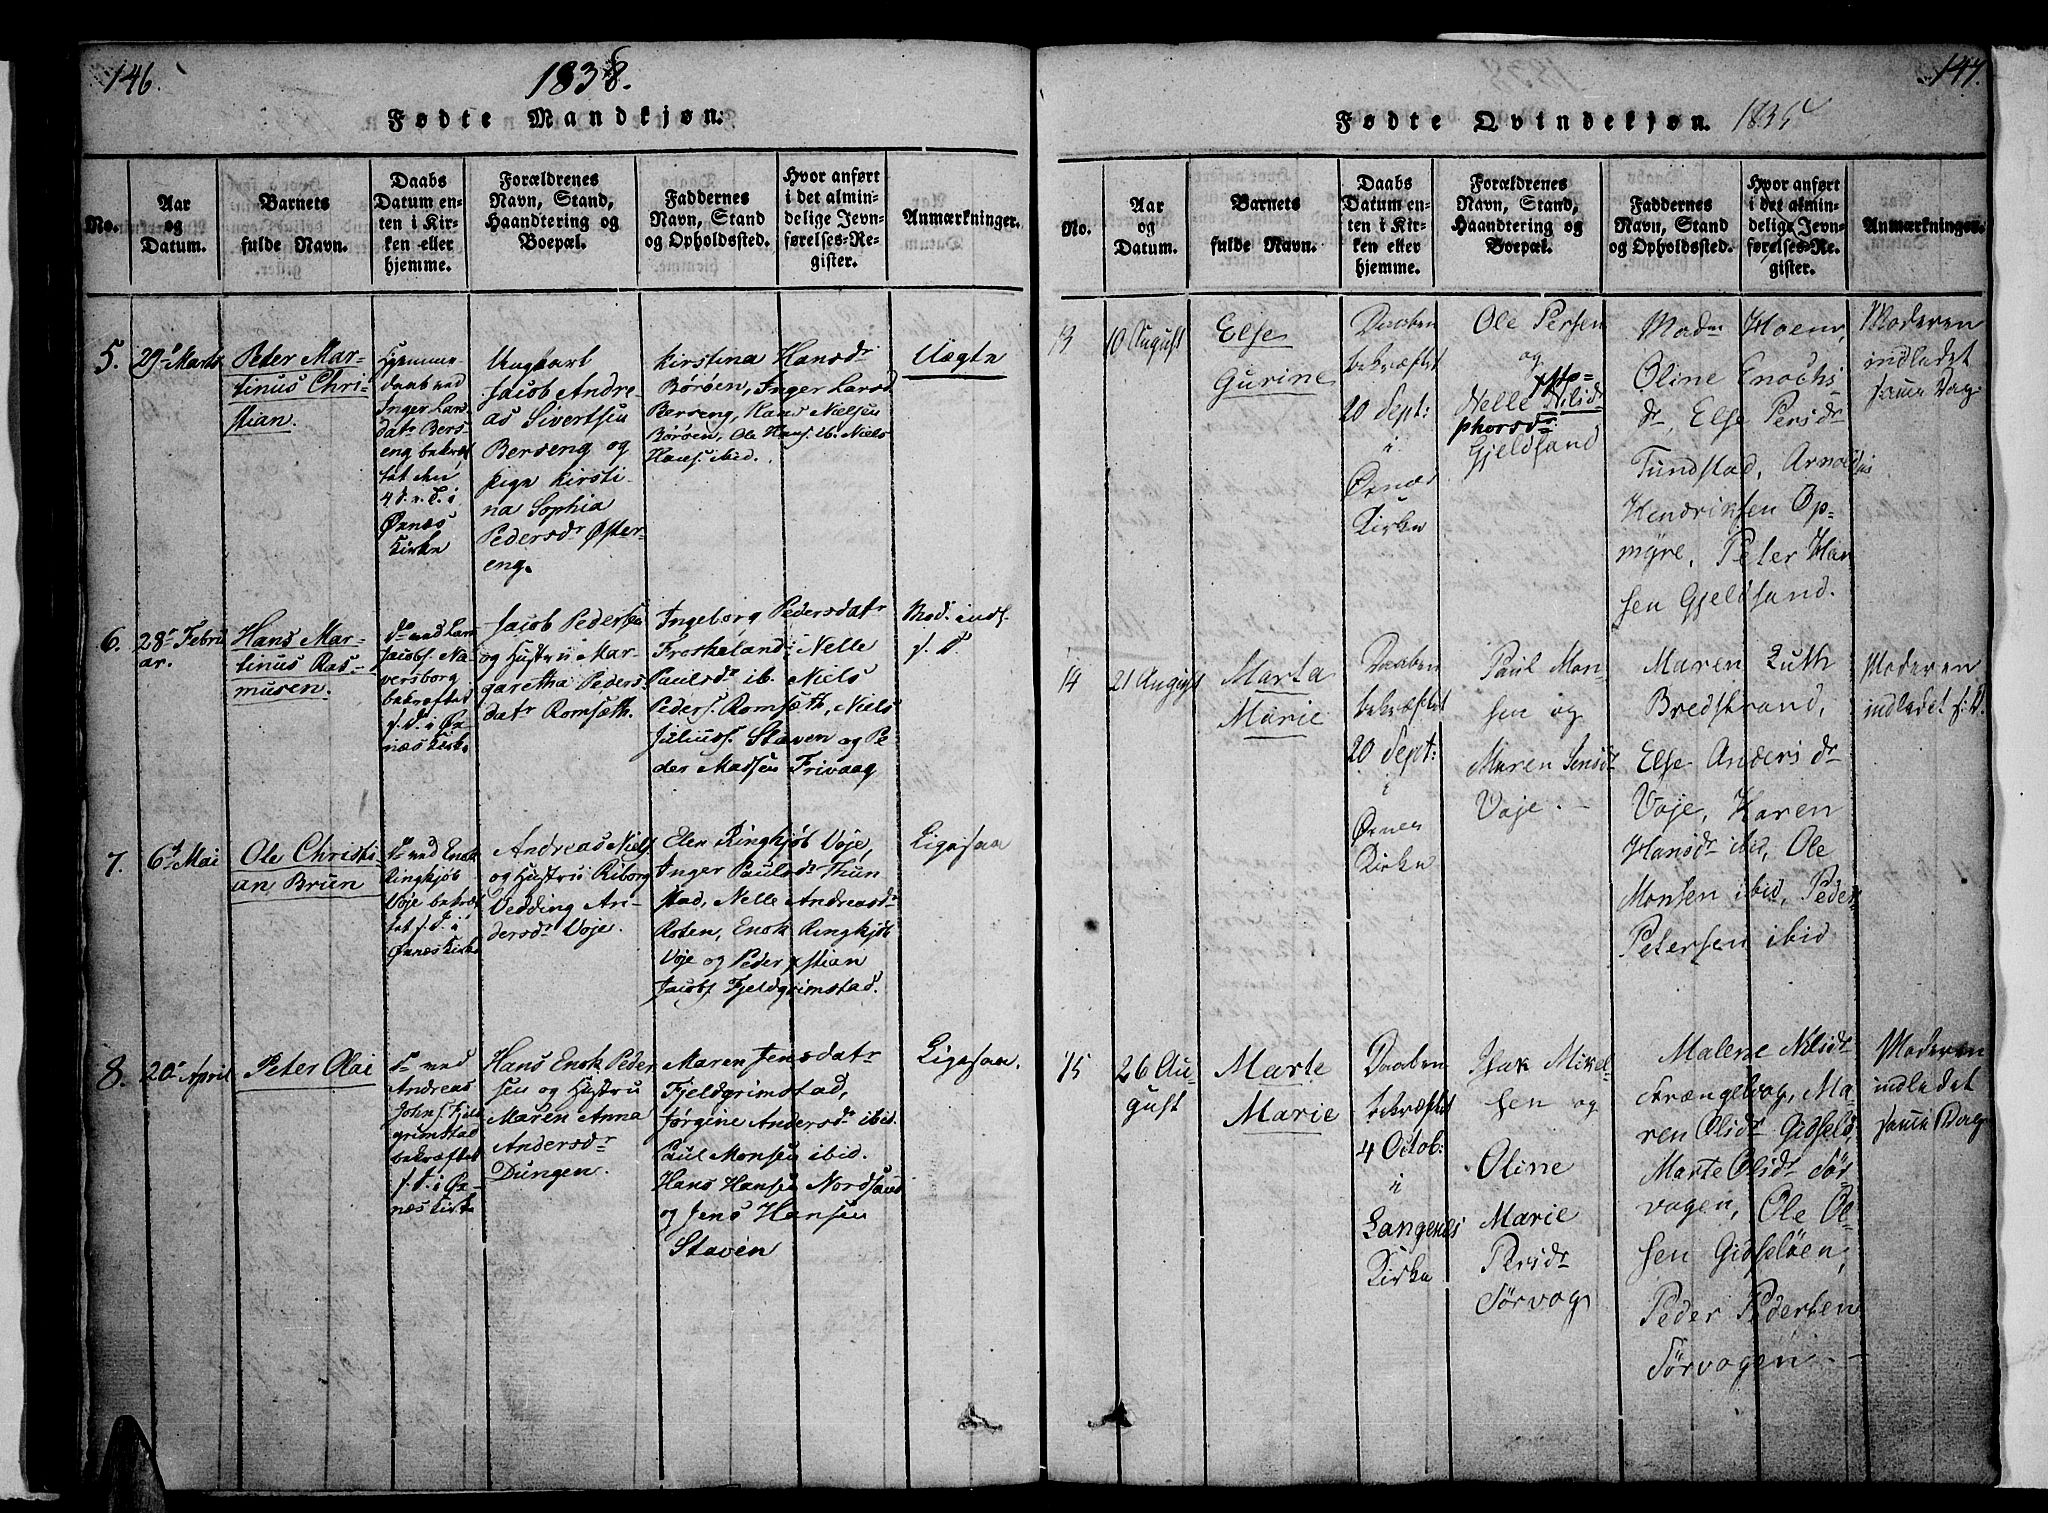 146.
1838.
Fødte Mandkjøn.
No.
Aar
og
Datum.
Barnets
fulde Navn.
Daabs
Datum en-
ten i Kir-
ken eller
hjemme.
Forældrenes
Navn, Stand,
Haandtering og
Boepæl.
Faddernes
Navn, Stand
og Opholdssted.
Hvor anført
i det almin-
delige Jevn-
førelses-Re-
gister.
Anmærkninger.
5.
29 Marts
Peter Mar-
tinus Chri-
stian.
Hjemme-
daab ved
Inger Lars-
datr Bers-
eng bekræf-
tet den
i
Øxnæs
Kirke
Ungkarl
Jacob Andre-
as Sivertsen
Berseng og
Pige Kirsti-
na Sophia
Pedersdr Øster-
eng.
Kirstina Hansdr
Børøen, Inger Larsd
Berseng, Hans Nielsen
Børøen, Ole Hans. ib. Niels
Hans. ibid.
Uægte
6.
28 Febru
ar.
Hans Mar-
tinus Ras-
musen.
do ved Lars
Jacobs. Na-
versborg
bekræftet
s. D. i Øx-
næs Kirke
Jacob Pedersen
og Hustru Mar-
garetha Peders-
datr Romsæth.
Ingeborg Pedersdatr
Freskeland, Nelle
Paulsdr ib. Niels
Peders. Romsæth, Niels
Juliuss. Staven og Pe-
der Madsen Frivaag
Mod. indl.
s. D.
7.
6 Mai
Ole Christi-
an Brun
do ved Enok
Ringkjøb
Voje bekræf-
tet s. D. i
Øxnæs Kirke
Andreas Niels.
og Hustru Riborg
Vedding An-
dersdr Voje.
Elen Ringkjøb Voje,
Inger Paulsdr Thun
stad, Nelle Andreasdr
Roten, Enok Ringkjøb
Voje og Peder xstian
Jacobs. Fjeldgrimstad.
Ligesaa
8.
20 April
Peter Olai
do ved
Andreas
Johns. Fjeld
grimstad
bekræftet
s. D. i Øx-
næs Kirke
Hans Enok Peder
sen og Hustru
Maren Anna
Andersdr
Dungen.
Maren Jensdatr
Fjeldgrimstad,
Jørgine Andersdr ibid.
Paul Monsen ibid.
Hans Hansen Nordsand
og Jens Hansen
Staven
Ligesaa.
147.
Fødte Qvindekjøn. 1835
No.
Aar
og
Datum.
Barnets
fulde Navn.
Daabs
Datum en-
ten i Kir-
ken eller
hjemme.
Forældrenes
Navn, Stand,
Haandtering og
Boepæl.
Faddernes
Navn, Stand
og Opholdssted.
Hvor anført
i det almin-
delige Jevn-
førelses-Re-
gister.
Anmærkninger.
13
10 August
Else
Gurine
Daaben
bekræftet
20 Sept:
i
Øxnæs
Kirke
Ole Persen
og
Nelle Nilsdr
phorsdr
Gjeldsand
Mad Hoem,
Oline Enochs
dr, Else Persdr
Tundstad, Arnoldus
Hendriksen Op-
myre, Peter Han
sen Gjeldsand.
Moderen
indledet
samme Dag
14
21 August
Marta
Marie
Daaben
bekræftet
20 Sept:
i
Øxnes
Kirke
Paul Mon-
sen og
Maren Jensdr
Voje. -
Maren Luth
Bredstrand,
Else Anders dr
Voje, Karen
Hansdr ibid, Ole
Monsen ibid, Peder
Petersen ibid
Moderen
indledet s: D.
15
26 Au-
gust
Marte
Marie
Daaben
bekræftet
4 Octob:
i
Langenes
Kirke
Isak Mikel-
sen og
Oline
Marie
Persdr
Sørvog
Malene Nilsdr
Strængelvog, Ma-
ren Olsdr Gidselø,
Marte Olsdr Sør-
vagen, Ole Ol-
sen Gidseløen,
Peder Pedersen
Sørvogen -
Moderen
indledet
samme Dag